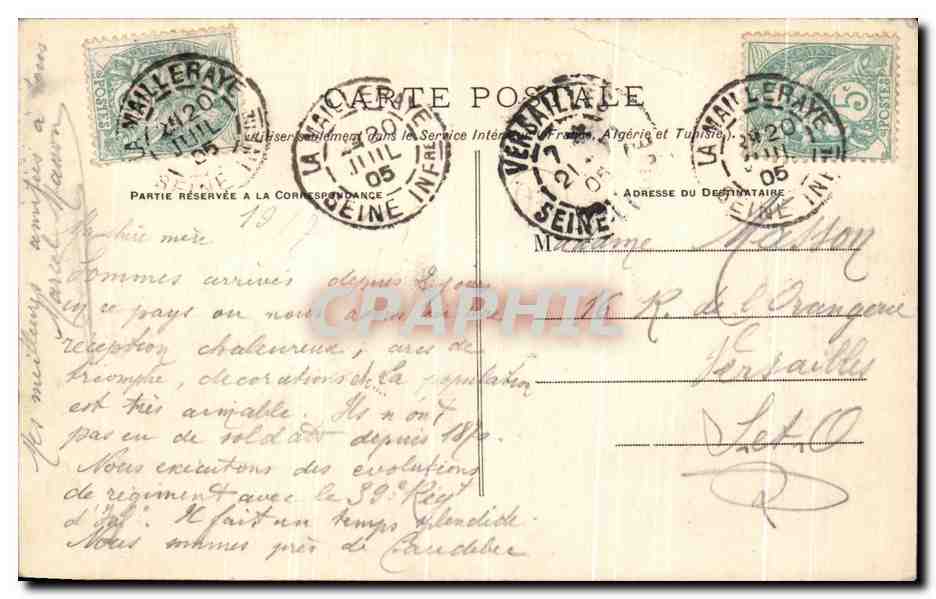 CARTE POSTALE
utiliser seulement dans le Service Intérieur (France, Algérie et Tunisie).
PARTIE RÉSERVÉE A LA CORRESPONDANCE
ADRESSE DU DESTINATAIRE
LA MAILLERAYE
20
JUIL
05
SEINE INFRE
LA MAILLERAYE
20
JUIL
05
SEINE INFRE
VERSAILLES
7
21
05
SEINE
LA MAILLERAYE
20
JUIL
05
SEINE INFRE
5c
POSTES
CPAPHIL
19
Ma chère mère
Sommes arrivés depuis
en ce pays ou nous avons eu une
réception chaleureux, arcs de
triomphe, décorations etc. La population
est très aimable. Ils n'ont
pas eu de soldats depuis 1870.
Nous exécutons des évolutions
de régiment avec le 39e Régt
d'Inf. Il fait un temps splendide.
Nous sommes près de Caudebec
Mes meilleurs amitiés à tous
Marcel
Madame
16 R. de l'Orangerie
Versailles
S. et. O